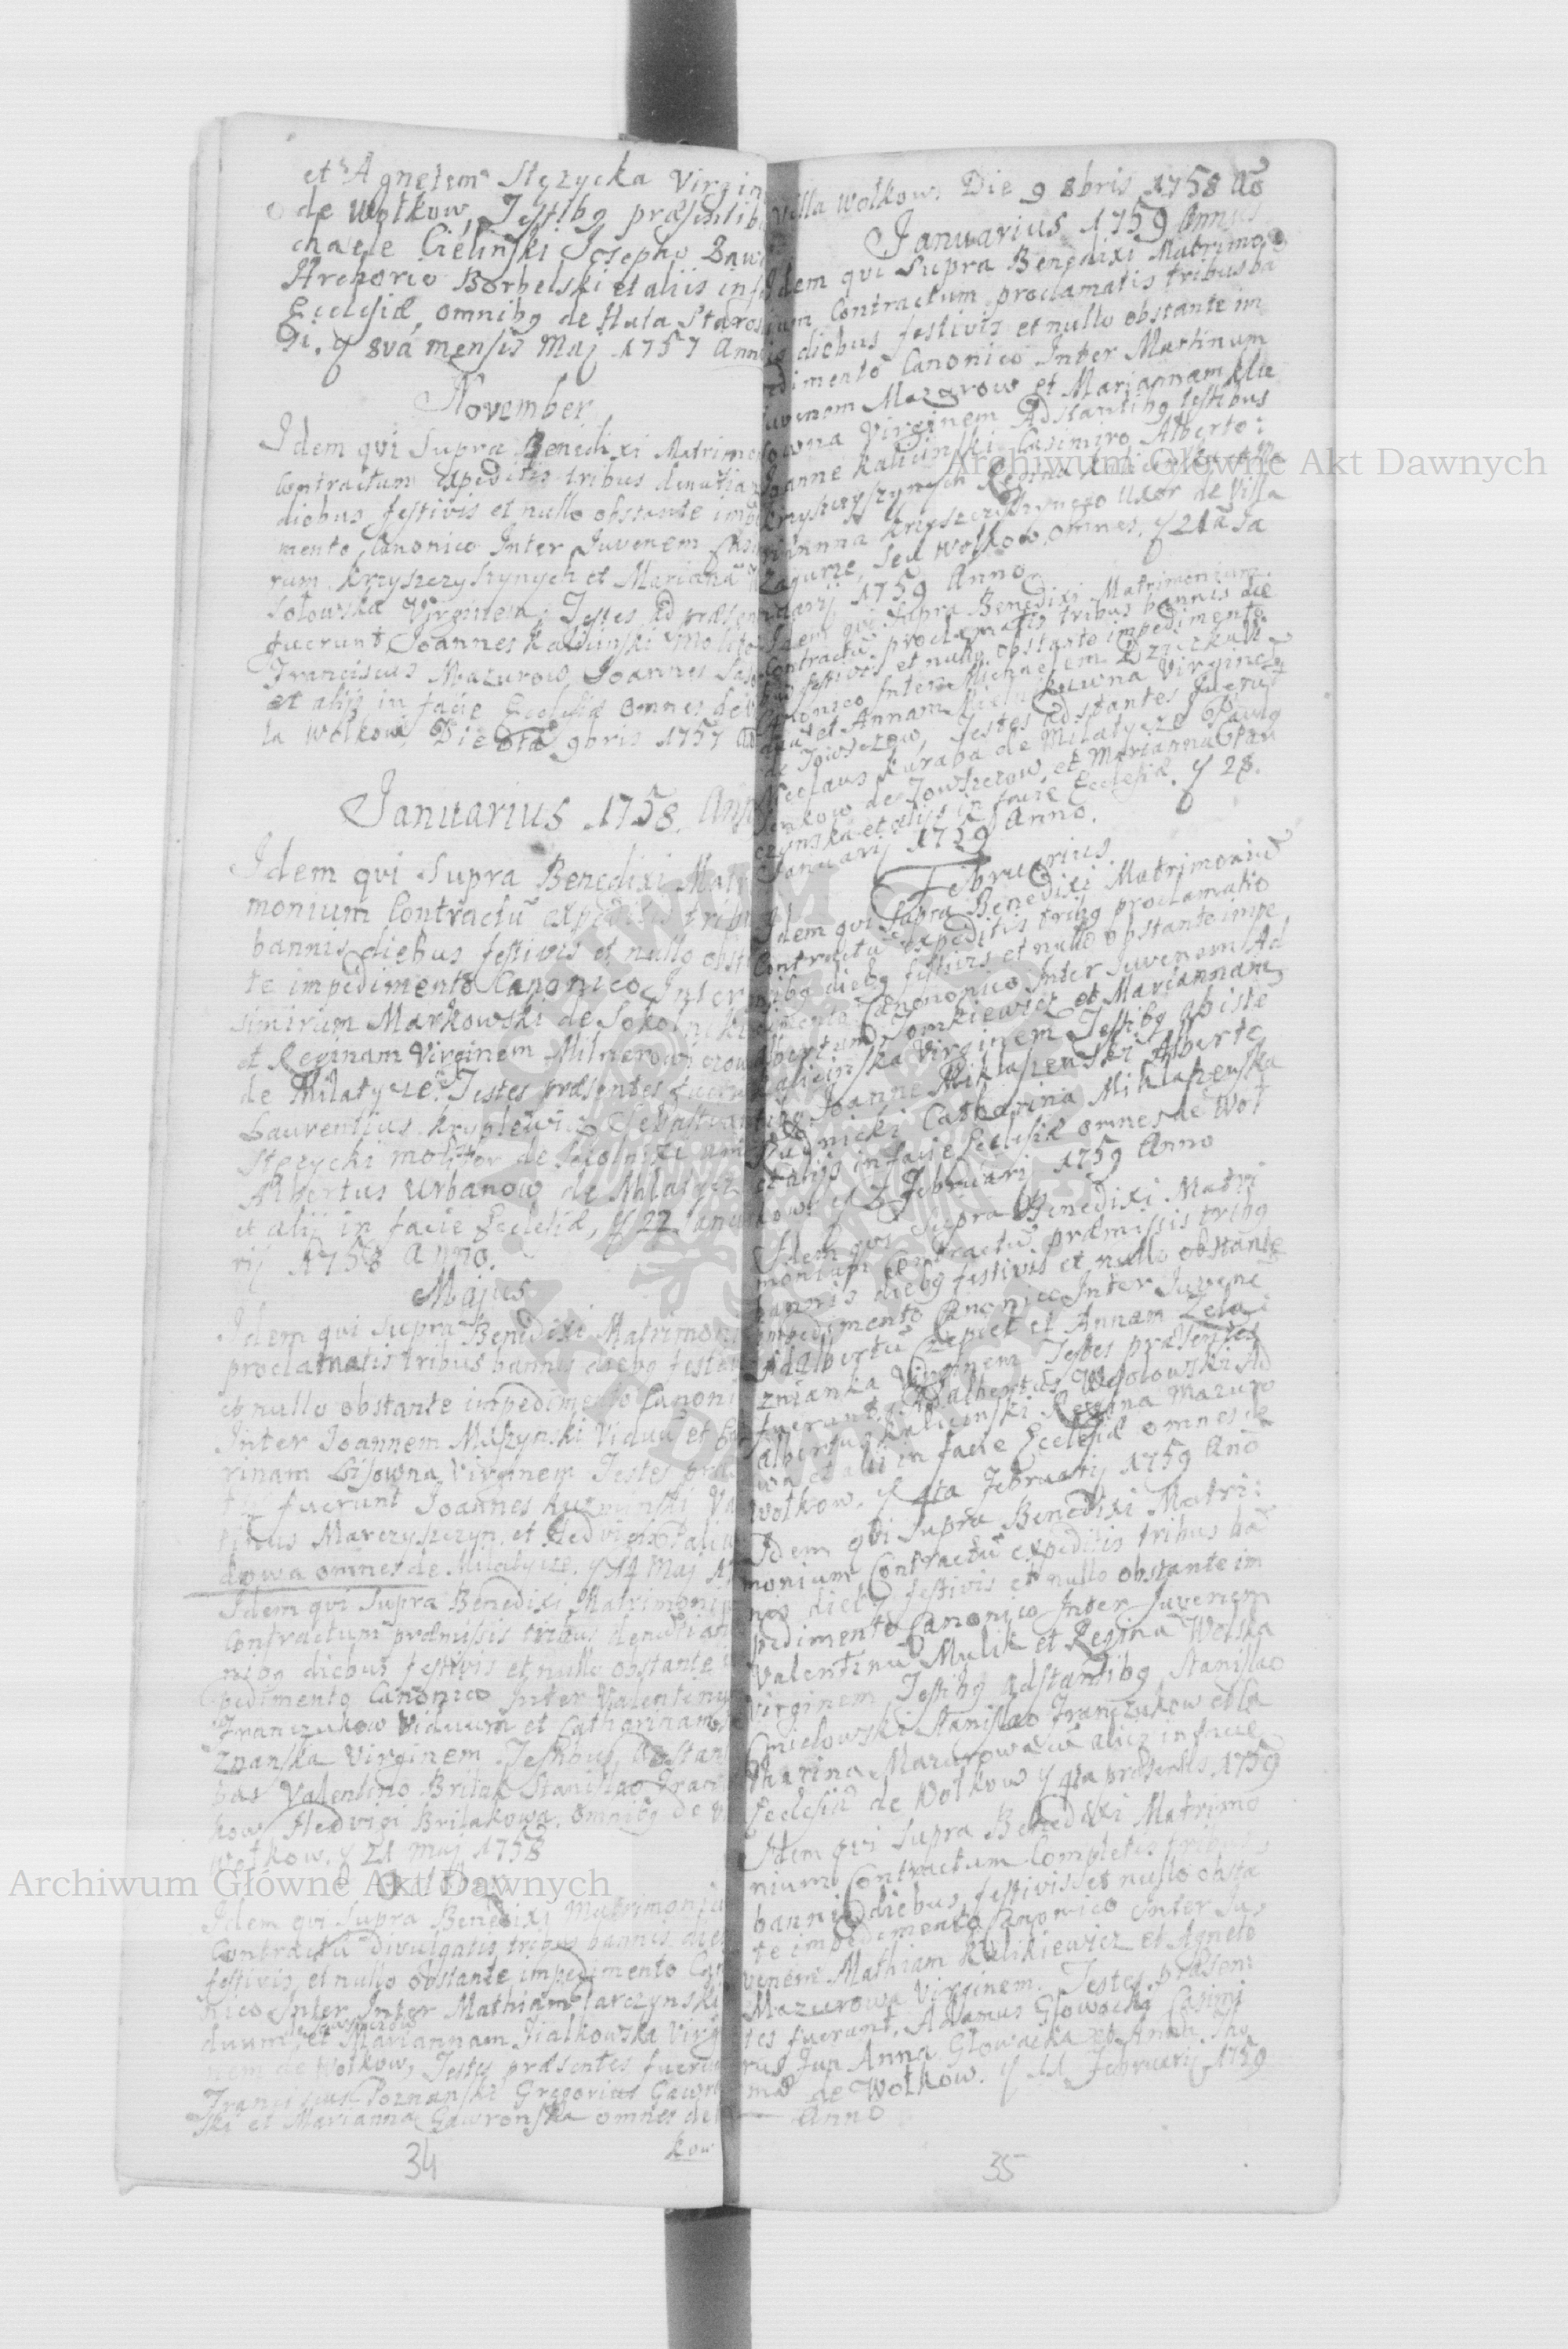 et Agnetem Stęzycka Virgin
de Wołkow, Testibg præsentib
chaele Cielinski Josepho Zaw
Hrehorio Borbelski et aliis in fa
Ecclesiæ, omnibg de Huta Staros
8va mensis Maj 1757 Anno
November
Idem qui Supra Benedixi Matrimo
Contractum expeditis tribus denutian
diobus festivis et nullo obstante impe
mento Canonico Inter Juvenem Casi
rum Krzyszczyszynych et Mariana
sołowska Virginem; Testes ad præsen
fuerunt Joannes Kalicinski Molito
Franciscus Mazurow Joannes
et alij in facie Ecclesiæ omnes de Vi
la Wołkow, Die 9bris 1757
Januarius 1758. Ann
Idem qui Supra Benedixi Matri
monium Contractu expeditis tribu
bannis diebus festivis et nullo obst
te impedimento Canonico Inter
simirum Markowski de Sokolniki
et Reginam Virginem Milnerowiczow
de Miłatycze. Testes præsentes fuer
Laurentius Kryplewicz Sebastian
Stęzycki molitor de Sokolniki
Albertus Urbanow de Miłatycz
et alij in facie Ecclesiæ, 22 Janua
rij 1758 Anno.
Majus
Idem qui Supra Benedixi Matrimoni
proclamatis tribus bannis diebg festi
et nullo obstante impedimento Canoni
Inter Joannem Maszynski Viduu et
rinam Lisowna Virginem Testes præ
fuerunt Joannes Kuzminski Va
Marczyszczyn, et Hedvigis
dowa omnes de Miłatycze. 14 Maj
Idem qui Supra Benedixi Matrimoni
Contractum præmissis tribus denutian
nibg diebus festivis et nullo obstante
pedimento Canonico Inter Valentinu
Franczukow Viduum et Catharinam
znanska Virginem. Testibus Adstan
bus Valentino Brilak Stanislao Franc
kow Hedvigi Brilakowa, omnibg de
Wołkow. 21 Maj 1758
Idem qui Supra Benedixi Matrimoniu
Contractu divulgatis tribus bannis die
festivis, et nullo obstante impedimento Can
nico Inter Inter Mathiam Jarczynski
duum et Mariannam Fiałkowska Virgi
nem de Wołkow, Testes præsentes fueru
Franciscus Poznanski Gregorius Gawron
ski et Marianna Gawronska omnes de
kow
34
Villa Wołkow. Die 9 8bris 1758 Ao
Januarius 1759 Annus
Idem qui Supra Benedixi Matrimo
ium Contractum proclamatis tribus ba
diobus festivis et nullo obstante im
dimento Canonico Inter Martinum
uvenem Mazurow et Mariannam Klu
owna Virginem Adstantibg testibus
Joanne Kalicinski Casimiro Alberto
Krzyszczyszynych Regina Kalicinska
rianna Krzyszczyszynego Uxor de Villa
Zagurze, seu Wołkow omnes. 21a Ja
nuarij 1759 Anno
Idem qui Supra Benedixi Matrimonium
Contractu proclamatis tribus bannis die
bus festivis et nullo obstante impedimento
Canonico Inter Michaelem
et Annam Virginem
de Towszczow, Testes adstantes fuerut
Nicolaus Kuraba de Miłatycze Pavlg
Senkow de Towszczow et Marianna
czynska et alijs in facie Ecclesiæ. 28.
Januarij 1759 Anno.
Februarius
Idem qui Supra Benedixi Matrimoniu
Contractu expeditis tribg proclamatio
nibg diebg festivis et nullo obstante impe
dimento Canononico Inter Juvenem Ad
albertum Tomkiewicz et Mariannam
Kalicinska Virginem Testibg Absiste
tibg Joanne Miklaszewski Alberte
Rudnicki Catharina Miklaszewska
et alijs in facie Ecclesiæ omnes de Woł
kow. Februari 1759 Anno
Idem qui Supra Benedixi Matri
monium Contractu præmissis tribg
bannis diebg festivis et nullo obstante
impedimento Canonico Inter Juvene
Adalbertu Czepiel et Annam Zela
znianka Virginem Testes præsentes
fuerunt Adalbertus Wesołowski Ad
albertus Kalicinski Regina Mazuro
wa et alii in facie Ecclesiæ omnes de
Wołkow. 4ta Februarij 1759 Ano
Idem qui Supra Benedixi Matri:
monium Contractu expeditis tribus ba
nis diebg festivis et nullo obstante im
pedimento Canonico Inter Juvenem
Valentinu Mulik et Regina Welska
Virginem Testibg Adstantibg Stanislao
Cmielowski Stanislao Franczukow et Ca
tharina Mazurowa et aliis in facie
Ecclesiæ de Wołkow 4ta præsentis 1759
Idem qui Supra Benedixi Matrimo
nium Contractum Completis tribus
bannis diebus festivis et nullo obsta
te impedimento Canonico Inter Ju
venem Mathiam Kulikiewicz et Agnete
Mazurowa Virginem. Testes præsen
tes fuerunt. Adamus Głowacky Casimi
rus Jun Anna Głowacka et Anna Tho
ma de Wołkow. 11 Februarij 1759
Anno
35
Archiwum Główne Akt Dawnych
Archiwum Główne Akt Dawnych